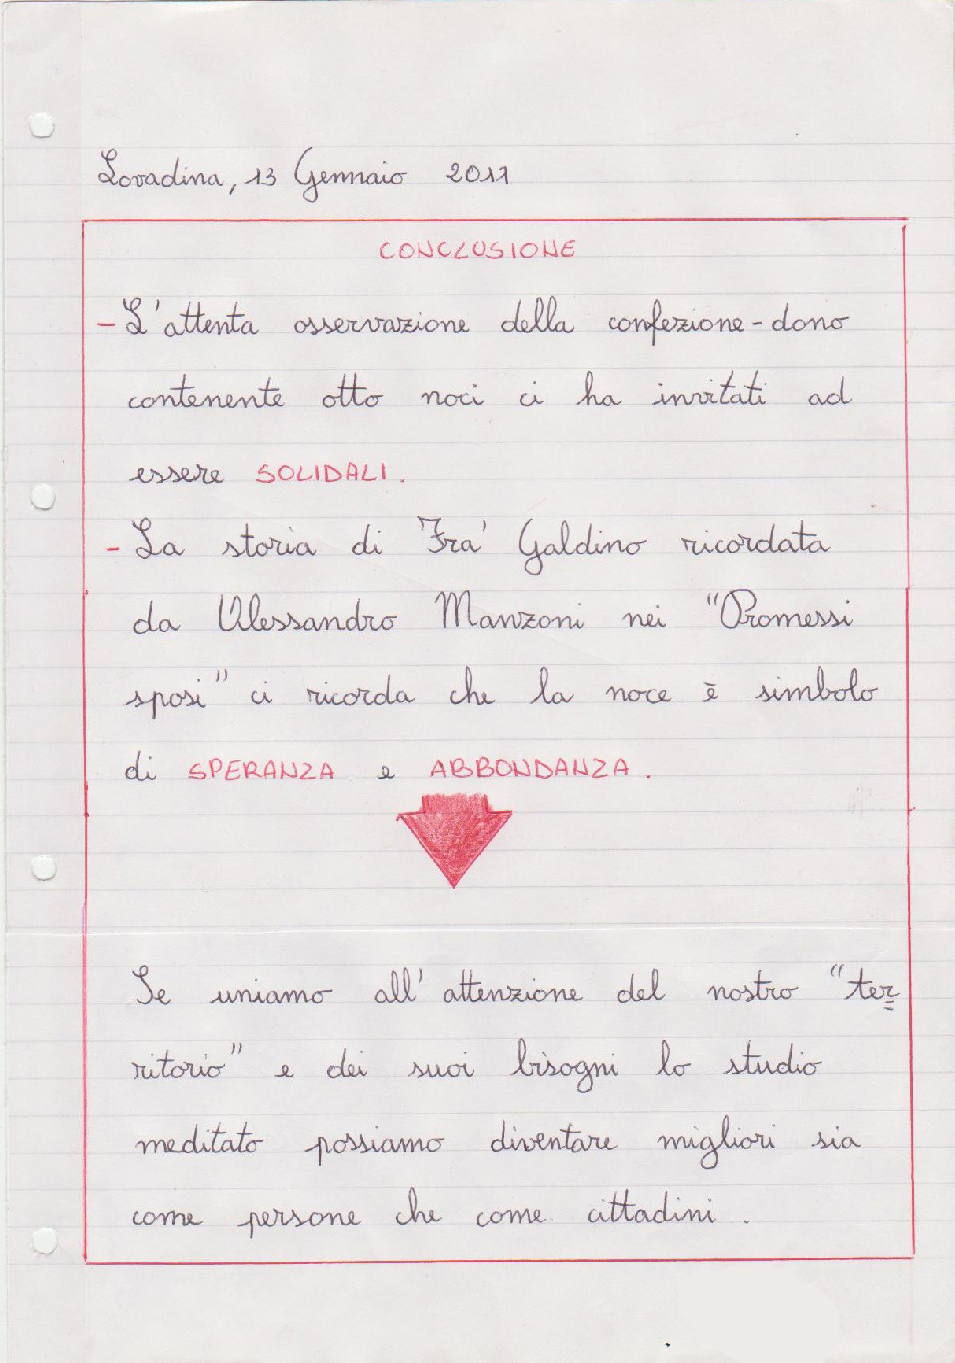 Lovadina, 13 Gennaio 2011
CONCLUSIONE
- L'attenta osservazione della confezione-dono
contenente otto noci ci ha invitati ad
essere SOLIDALI.
- La storia di Fra' Galdino ricordata
da Alessandro Manzoni nei "Promessi
sposi" ci ricorda che la noce è simbolo
di SPERANZA e ABBONDANZA.
Se uniamo all'attenzione del nostro "ter=
ritorio" e dei suoi bisogni lo studio
meditato possiamo diventare migliori sia
come persone che come cittadini.